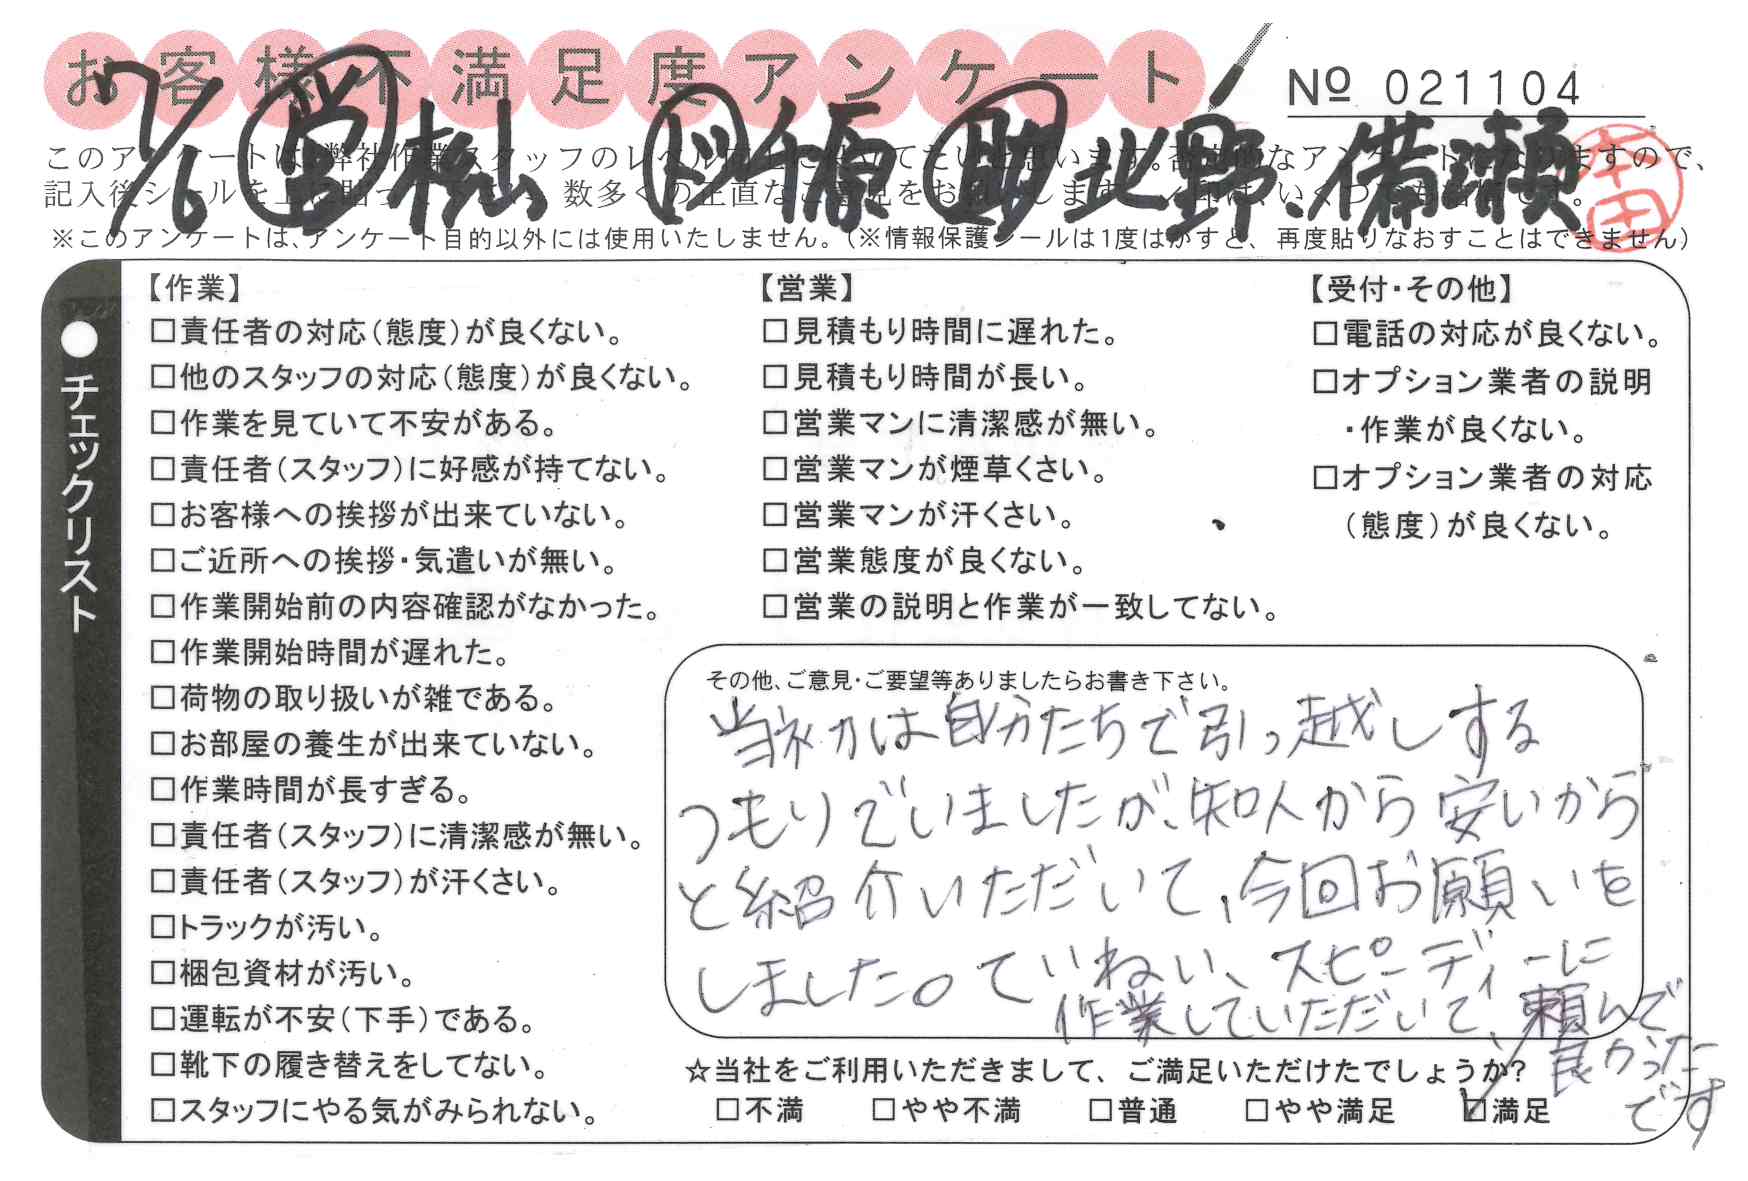 お客様不満足度アンケート
№ 021104
7/6 営 松山 ド 原 助 北野、備瀬
このアンケートは、弊社作業スタッフのレベル向上に
なアンケートになりますので、
記入後シールを上に貼って下さい。数多くの正直なご意見をお願いします。
※このアンケートは、アンケート目的以外には使用いたしません。（※情報保護シールは1度はがすと、再度貼りなおすことはできません）
●チェックリスト
【作業】
□責任者の対応（態度）が良くない。
□他のスタッフの対応（態度）が良くない。
□作業を見ていて不安がある。
□責任者（スタッフ）に好感が持てない。
□お客様への挨拶が出来ていない。
□ご近所への挨拶・気遣いが無い。
□作業開始前の内容確認がなかった。
□作業開始時間が遅れた。
□荷物の取り扱いが雑である。
□お部屋の養生が出来ていない。
□作業時間が長すぎる。
□責任者（スタッフ）に清潔感が無い。
□責任者（スタッフ）が汗くさい。
□トラックが汚い。
□梱包資材が汚い。
□運転が不安（下手）である。
□靴下の履き替えをしてない。
□スタッフにやる気がみられない。
【営業】
□見積もり時間に遅れた。
□見積もり時間が長い。
□営業マンに清潔感が無い。
□営業マンが煙草くさい。
□営業マンが汗くさい。
□営業態度が良くない。
□営業の説明と作業が一致してない。
【受付・その他】
□電話の対応が良くない。
□オプション業者の説明
・作業が良くない。
□オプション業者の対応
（態度）が良くない。
その他、ご意見・ご要望等ありましたらお書き下さい。
当初は自分たちで引っ越しする
つもりでいましたが、知人から安いから
と紹介いただいて、今回お願いを
しました。ていねい、スピーディーに
作業していただいて、頼んで
良かった
です
☆当社をご利用いただきまして、ご満足いただけたでしょうか?
□不満 □やや不満 □普通 □やや満足 ☑満足